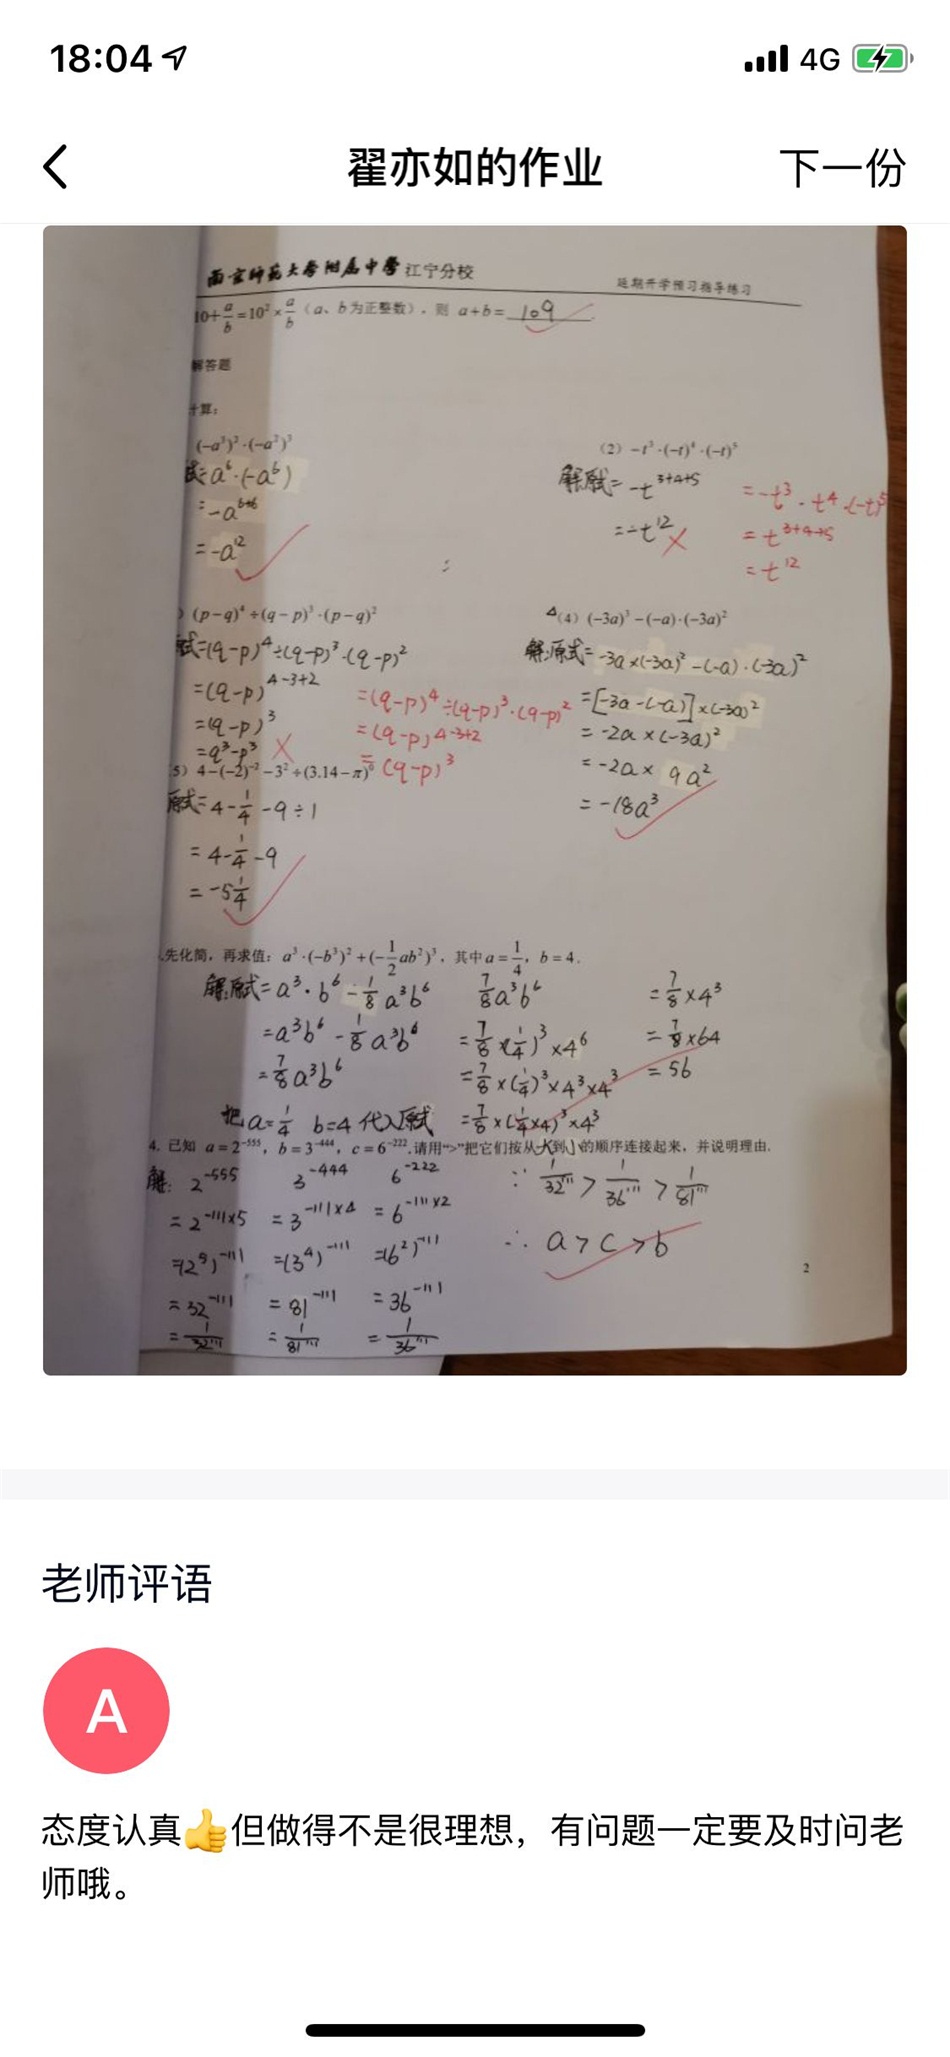 18:04
4G
翟亦如的作业
下一份
南京师范大学附属中学 江宁分校
延期开学预习指导练习
10+a/b=10²×a/b（a、b为正整数），则 a+b= 109
解答题
计算：
(-a³)²·(-a²)³
（2）-t³·(-t)⁴·(-t)⁵
式=a⁶·(-a⁶)
=-a⁶⁺⁶
=-a¹²
解:原式=-t³⁺⁴⁺⁵
=-t¹² ×
=-t³·t⁴·(-t)⁵
=t³⁺⁴⁺⁵
=t¹²
）(p-q)⁴÷(q-p)³·(p-q)²
（4）(-3a)³-(-a)·(-3a)²
原式=(q-p)⁴÷(q-p)³·(q-p)²
=(q-p)⁴⁻³⁺²
=(q-p)³
=q³-p³ ×
=(q-p)⁴÷(q-p)³·(q-p)²
=(q-p)⁴⁻³⁺²
=(q-p)³
解:原式=-3a×(-3a)²-(-a)·(-3a)²
=[-3a-(-a)]×(-3a)²
=-2a×(-3a)²
=-2a×9a²
=-18a³
5）4-(-2)⁻²-3²÷(3.14-π)⁰
原式=4-1/4-9÷1
=4-1/4-9
=-5 1/4
先化简，再求值：a³·(-b³)²+(-1/2ab²)³，其中a=1/4，b=4.
解:原式=a³·b⁶-1/8a³b⁶
=a³b⁶-1/8a³b⁶
=7/8a³b⁶
把a=1/4 b=4代入原式
7/8a³b⁶
=7/8×(1/4)³×4⁶
=7/8×(1/4)³×4³×4³
=7/8×(1/4×4)³×4³
=7/8×4³
=7/8×64
=56
4. 已知 a=2⁻⁵⁵⁵，b=3⁻⁴⁴⁴，c=6⁻²²².请用“>”把它们按从大到小的顺序连接起来，并说明理由.
解: 2⁻⁵⁵⁵ 3⁻⁴⁴⁴ 6⁻²²²
=2⁻¹¹¹ˣ⁵ =3⁻¹¹¹ˣ⁴ =6⁻¹¹¹ˣ²
=(2⁵)⁻¹¹¹ =(3⁴)⁻¹¹¹ =(6²)⁻¹¹¹
=32⁻¹¹¹ =81⁻¹¹¹ =36⁻¹¹¹
=1/32¹¹¹ =1/81¹¹¹ =1/36¹¹¹
∵ 1/32¹¹¹>1/36¹¹¹>1/81¹¹¹
∴ a>c>b
2
老师评语
A
态度认真👍但做得不是很理想，有问题一定要及时问老
师哦。